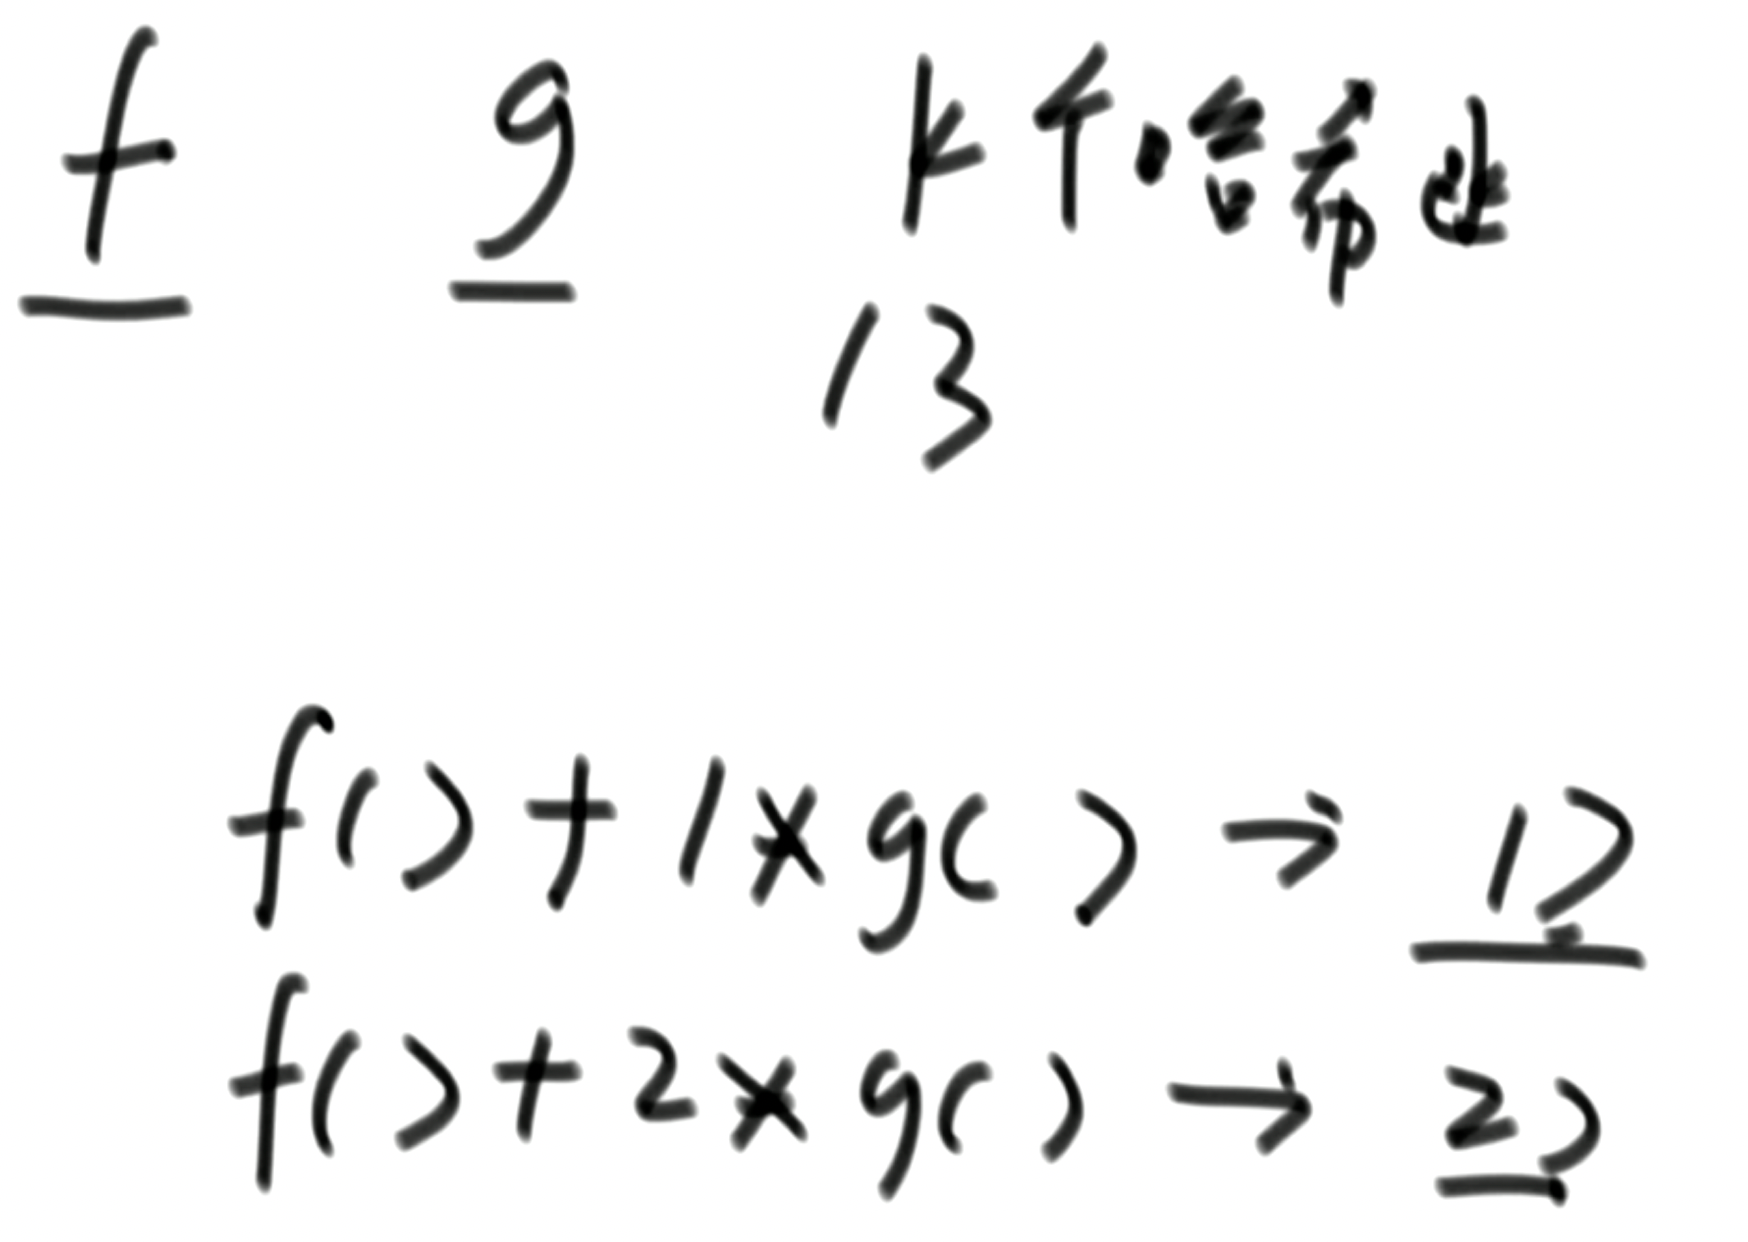 f g k个哈希函
13
f() + 1 * g() → 1)
f() + 2 * g() → 2)